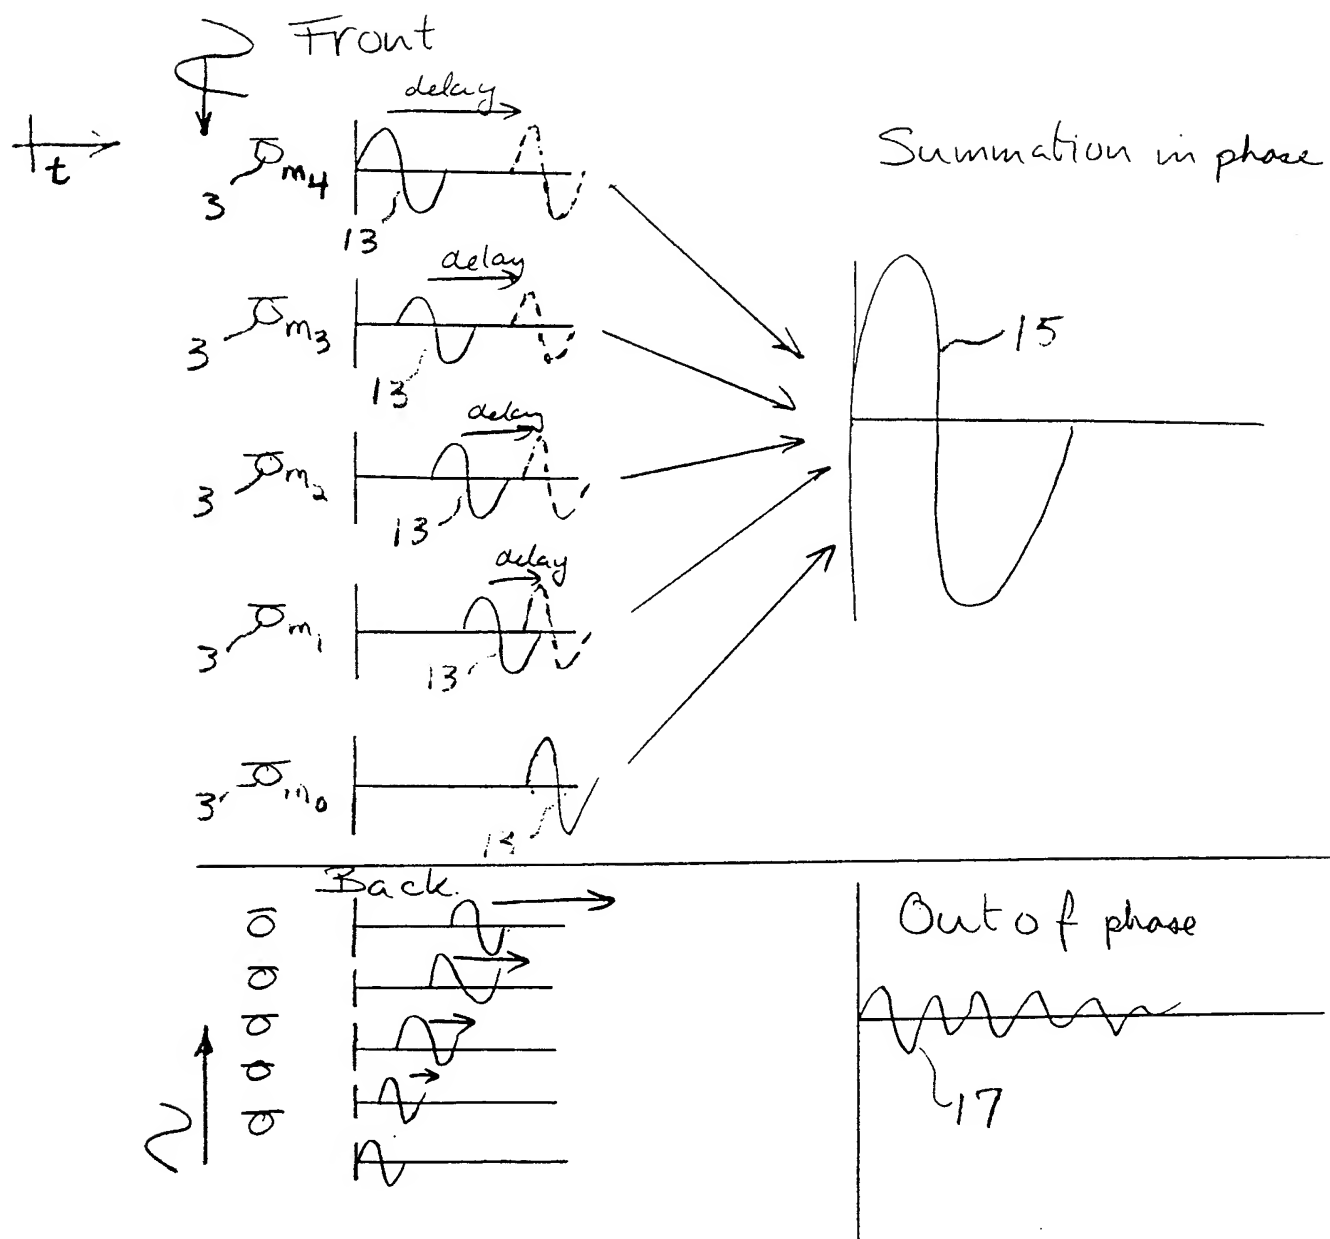 Front
delay
t
m4
3
13
Summation in phase
delay
m3
3
13
15
delay
m2
3
13
delay
m1
3
13
m0
3
Back.
Out of phase
17